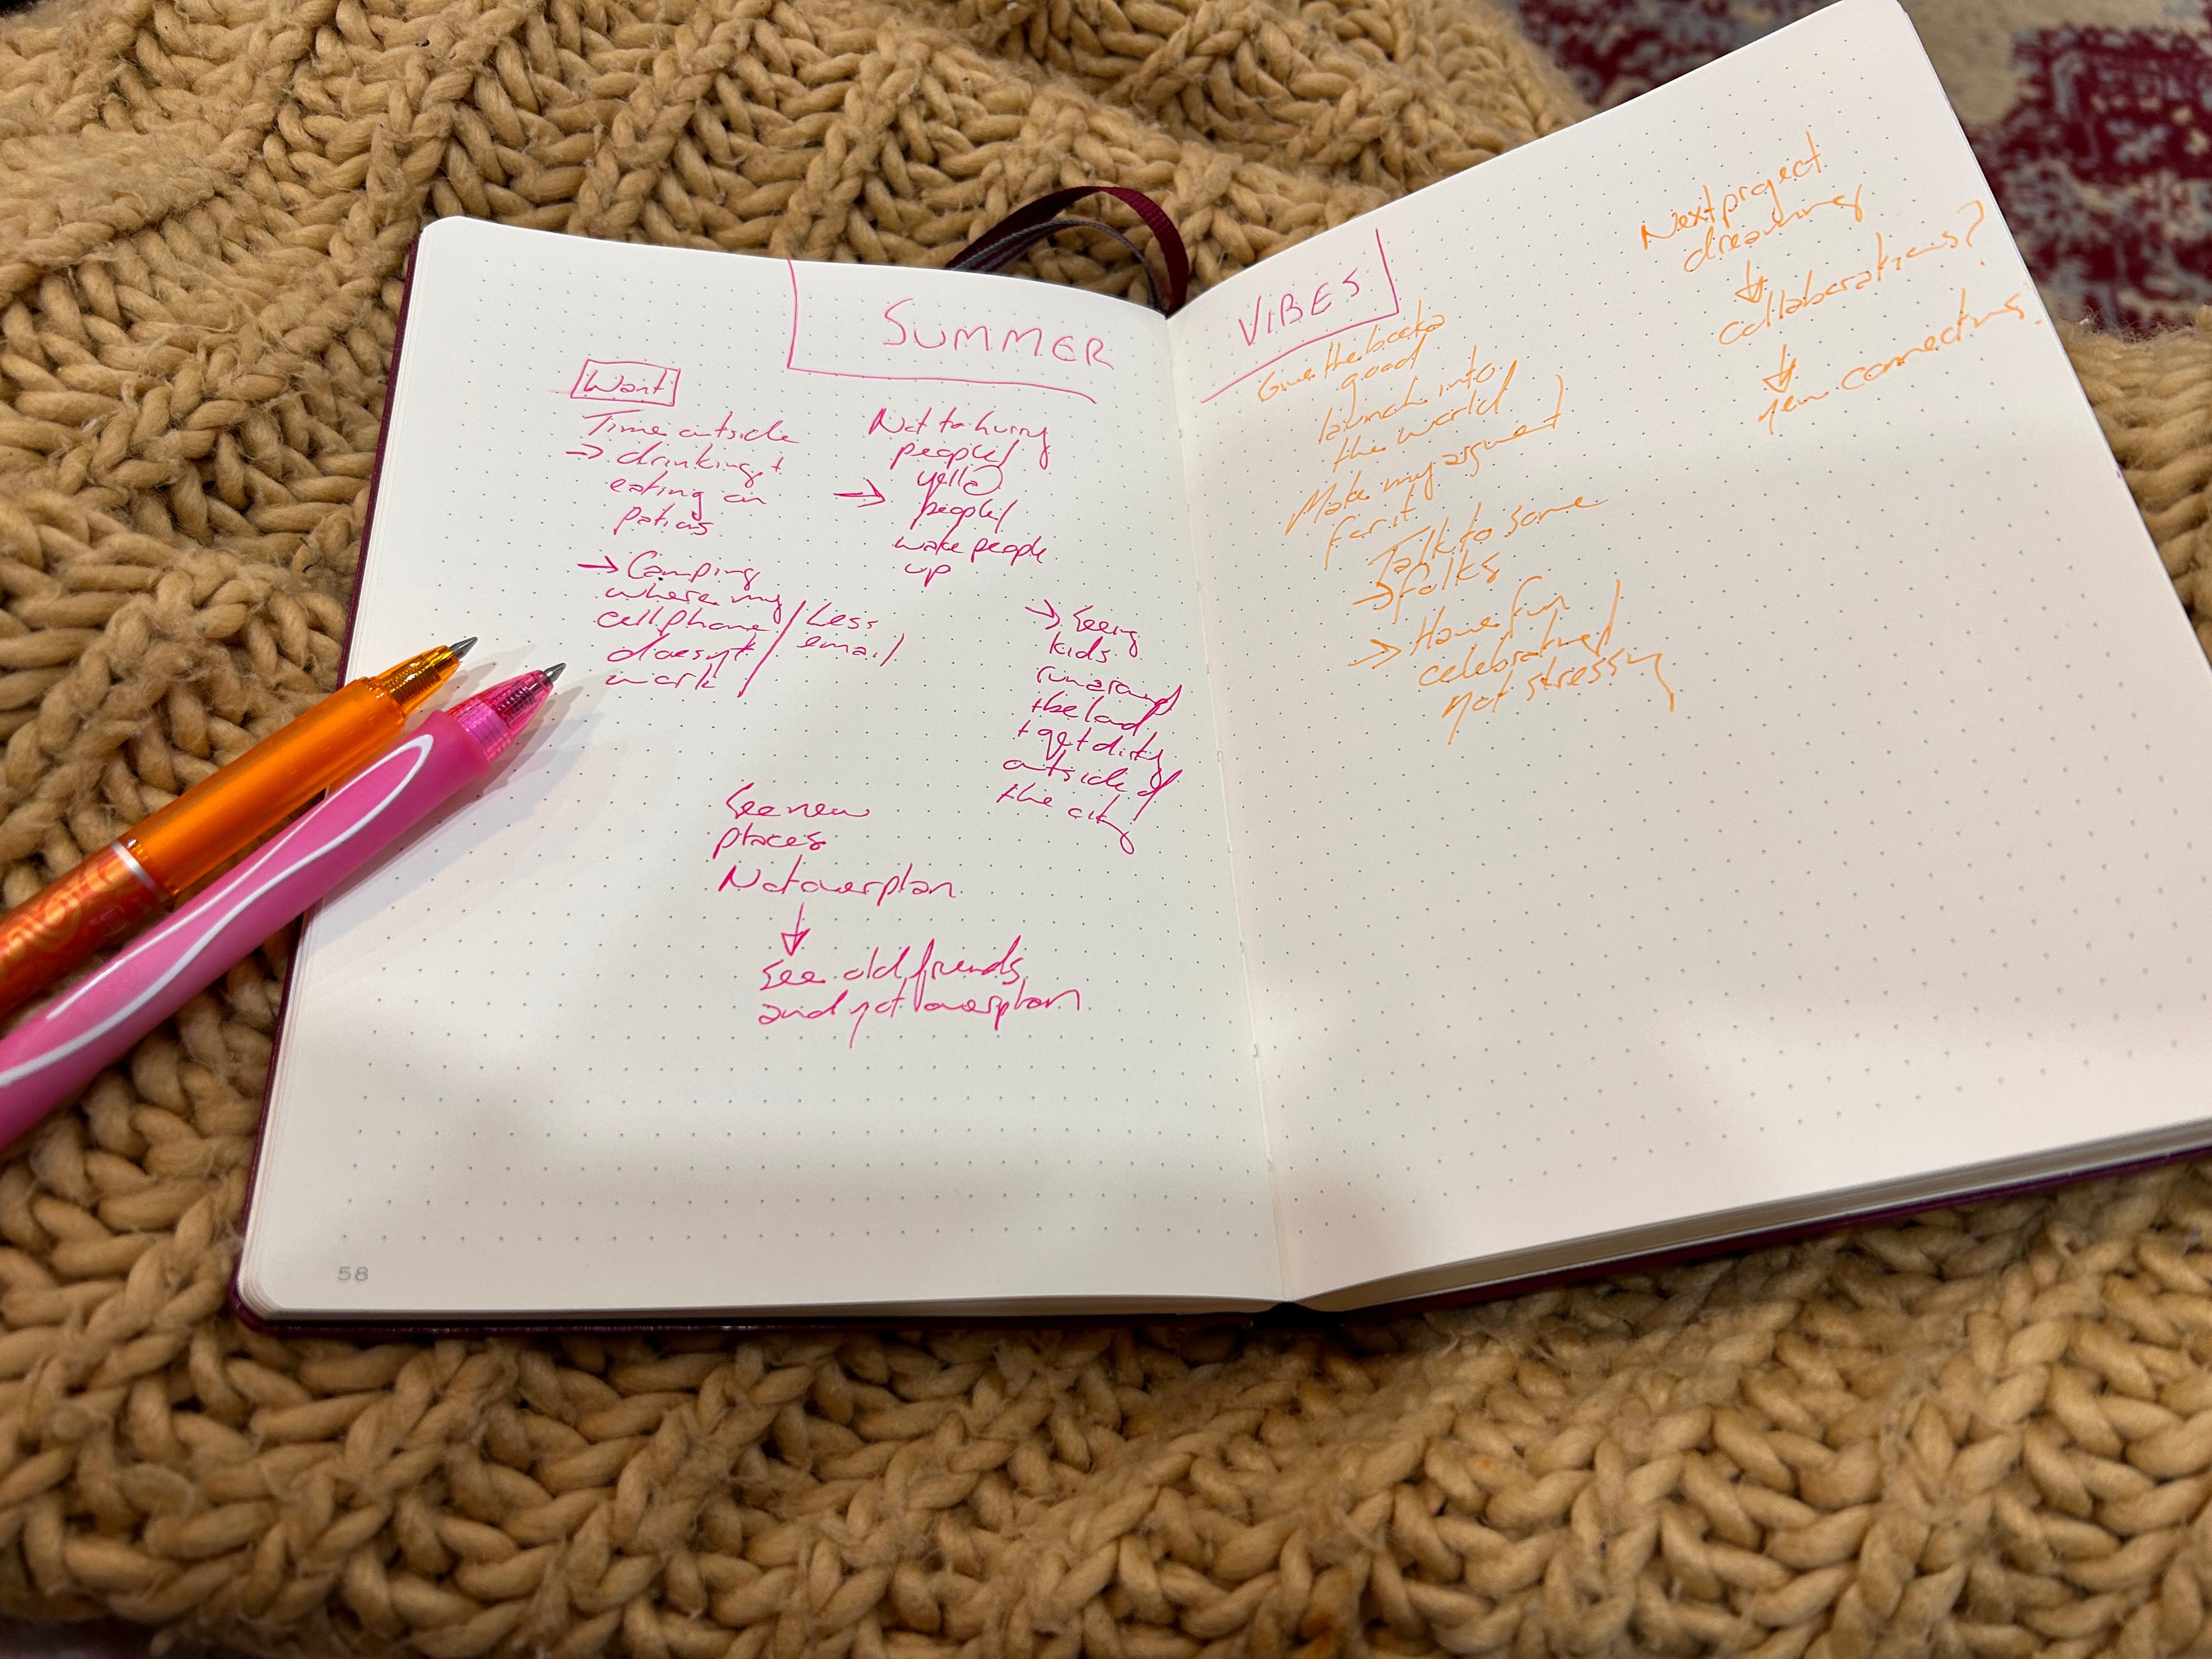 SUMMER VIBES
Want
Time outside
→ drinking +
eating on
patios
→ Camping
where my
cellphone / Less
doesn't / email
work
Not to hurry
people/
yell @
→ people/
wake people
up
→ Seeing
kids
run around
the land
+ get dirty
outside of
the city
See new
places
Not overplan
↓
See old friends
and not overplan
58
Give the book a
good
launch into
the world /
Make my argument
for it
Talk to some
→ folks
→ Have fun
celebrating /
not stressing
Next project
dreaming
↓
collaborations?
↓
new connections.